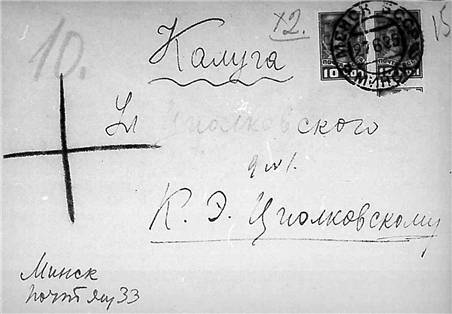 10.
x2.
15
Калуга
10
27 6 35
Ул Циолковского
д №1.
К. Э. Циолковскому
Минск
почт ящ 33